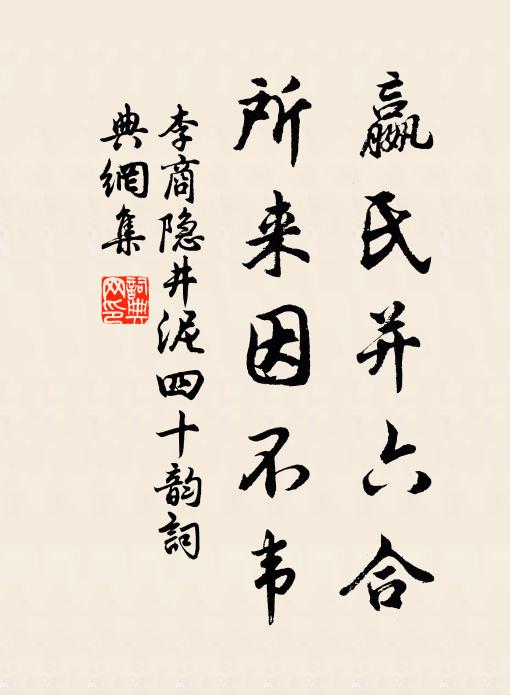 嬴氏并六合
所来因不韦
李商隐井泥四十韵詞
典網集
詞典
网印